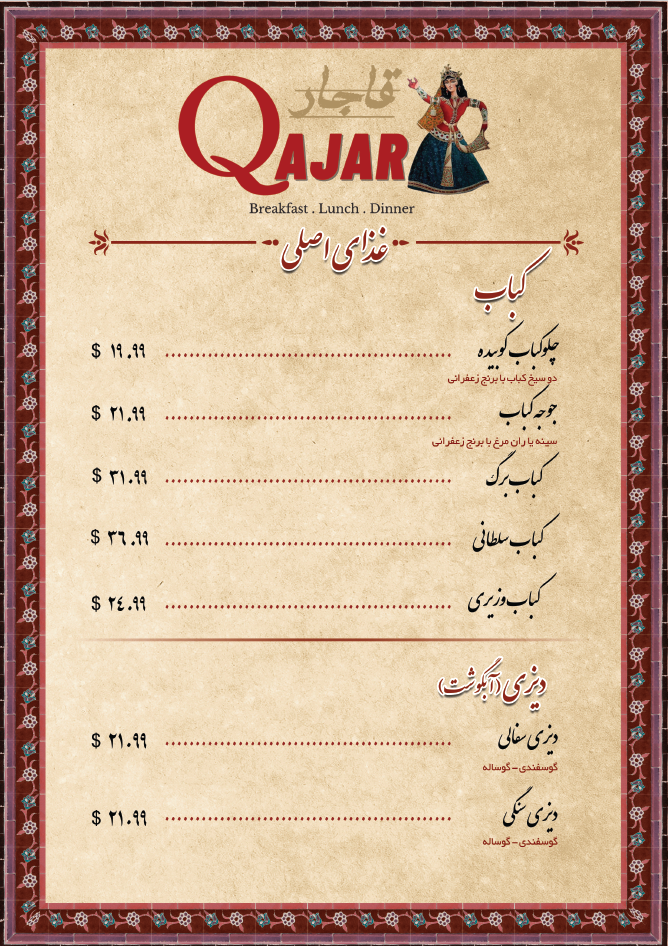 قاجار
QAJAR
Breakfast . Lunch . Dinner
غذای اصلی
کباب
چلوکباب کوبیده $ ۱۹.۹۹
دو سیخ کباب با برنج زعفرانی
جوجه کباب $ ۲۱.۹۹
سینه یا ران مرغ با برنج زعفرانی
کباب برگ $ ۳۱.۹۹
کباب سلطانی $ ۳٦.۹۹
کباب وزیری $ ۲٤.۹۹
دیزی (آبگوشت)
دیزی سفالی $ ۲۱.۹۹
گوسفندی - گوساله
دیزی سنگی $ ۲۱.۹۹
گوسفندی - گوساله